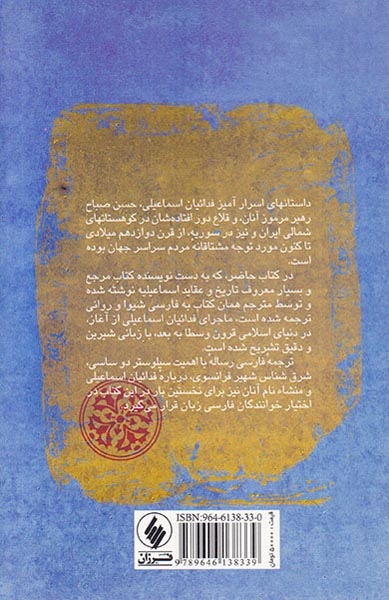 داستانهای اسرار آمیز فدائیان اسماعیلی، حسن صباح
رهبر مرموز آنان، و قلاع دور افتاده‌شان در کوهستانهای
شمالی ایران و نیز در سوریه، از قرن دوازدهم میلادی
تا کنون مورد توجه مشتاقانه مردم سراسر جهان بوده
است.
در کتاب حاضر، که به دست نویسنده کتاب مرجع
و بسیار معروف تاریخ و عقاید اسماعیلیه نوشته شده
و توسط مترجم همان کتاب به فارسی شیوا و روانی
ترجمه شده است، ماجرای فدائیان اسماعیلی از آغاز،
در دنیای اسلامی قرون وسطا به بعد، با زبانی شیرین
و دقیق تشریح شده است.
ترجمه فارسی رسالهٔ با اهمیت سیلوستر دو ساسی،
شرق شناس شهیر فرانسوی، دربارهٔ فدائیان اسماعیلی
و منشاء نام آنان نیز برای نخستین بار در این کتاب در
اختیار خوانندگان فارسی زبان قرار می‌گیرد.
ISBN:964-6138-33-0
9789646138339
فرزان
قیمت: ۵۰۰۰۰ تومان